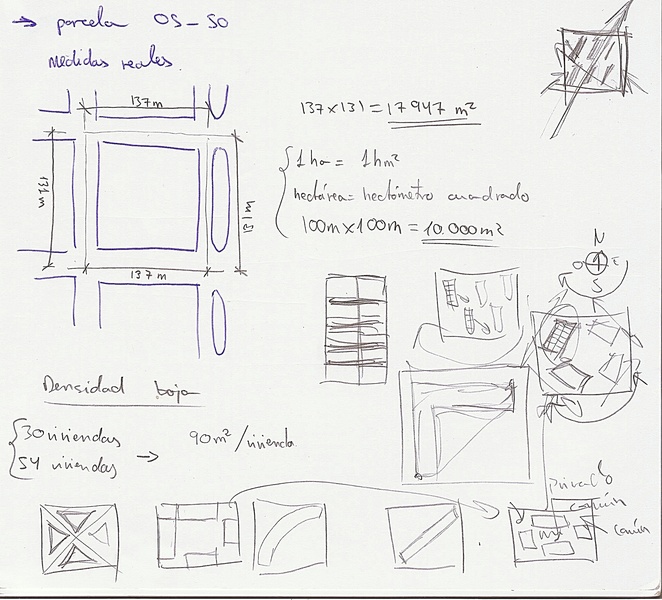 → parcela OS-SO
medidas reales.
137 m
131 m
131 m
137 m
137 x 131 = 17947 m²
1 ha = 1 hm²
hectárea = hectómetro cuadrado
100m x 100m = 10.000 m²
N
O E
S
Densidad baja
30 viviendas
54 viviendas → 90 m²/vivienda
privado
común
común